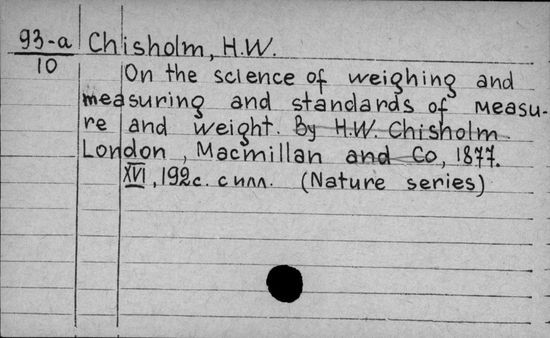 93-a Chisholm, H.W.
10
On the science of weighing and
measuring and standards of measu-
re and weight. By H.W. Chisholm
London, Macmillan and Co, 1877.
XVI, 192c. с илл. (Nature series)